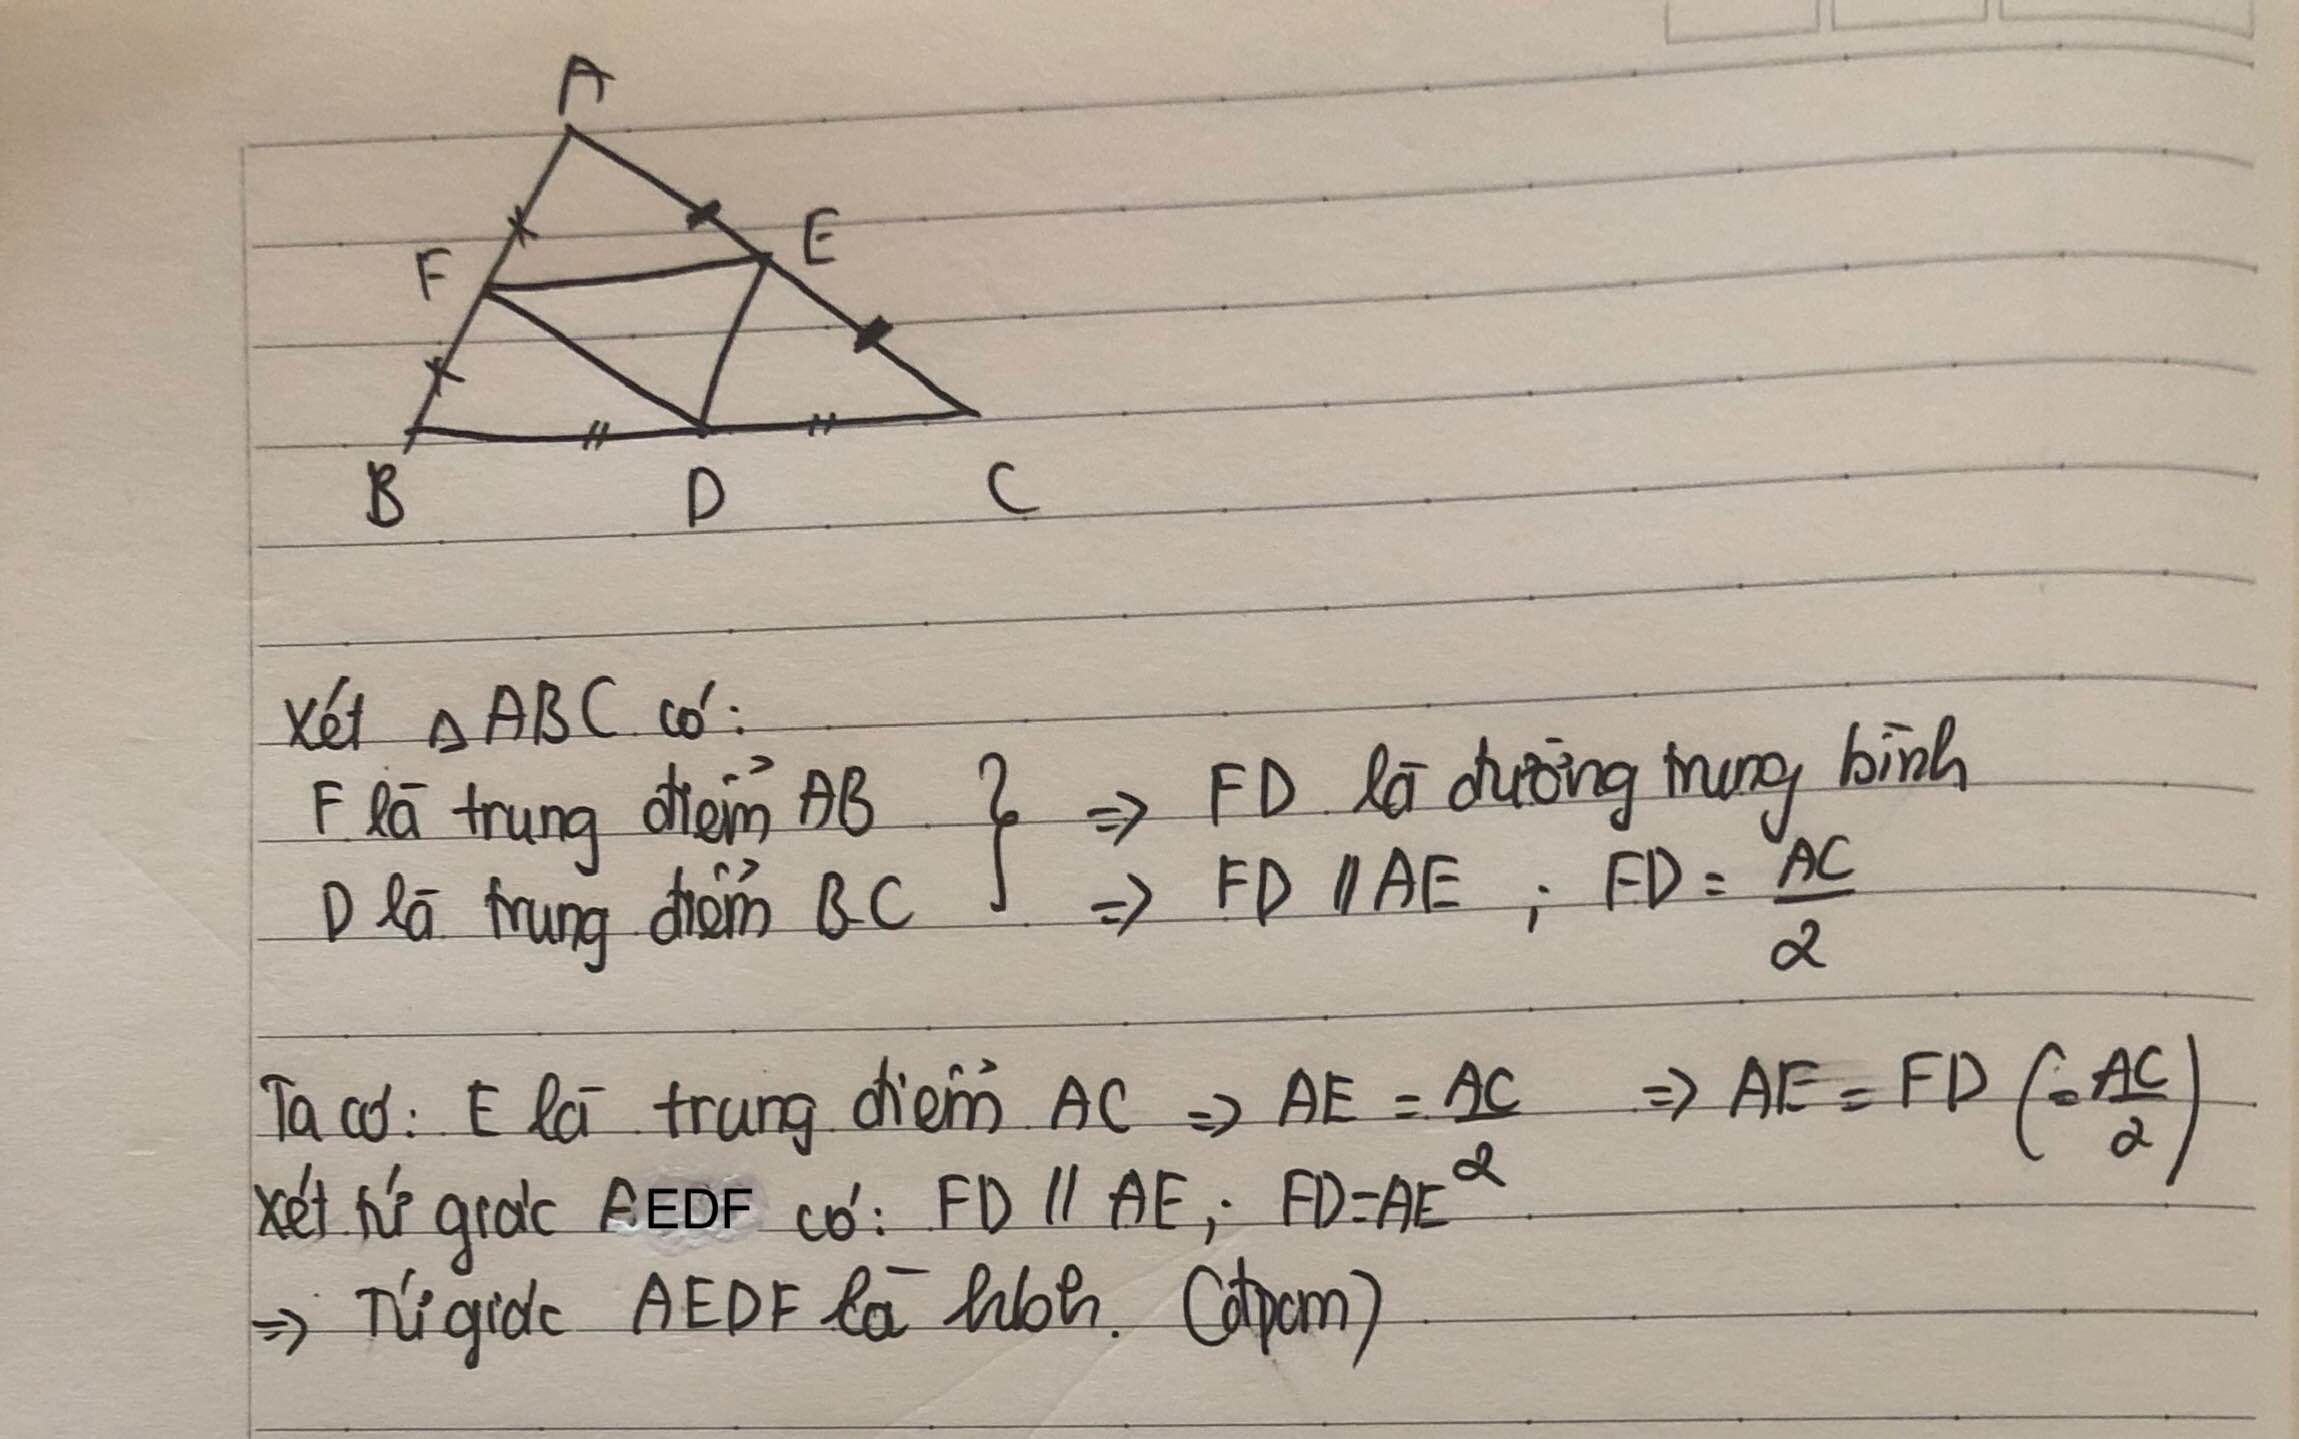 A
E
F
B D C
Xét △ABC có:
F là trung điểm AB } => FD là đường trung bình
D là trung điểm BC => FD // AE ; FD = AC/2
Ta có: E là trung điểm AC => AE = AC/2 => AE = FD (= AC/2)
Xét tứ giác AEDF có: FD // AE ; FD = AE
=> Tứ giác AEDF là hbh. (đpcm)